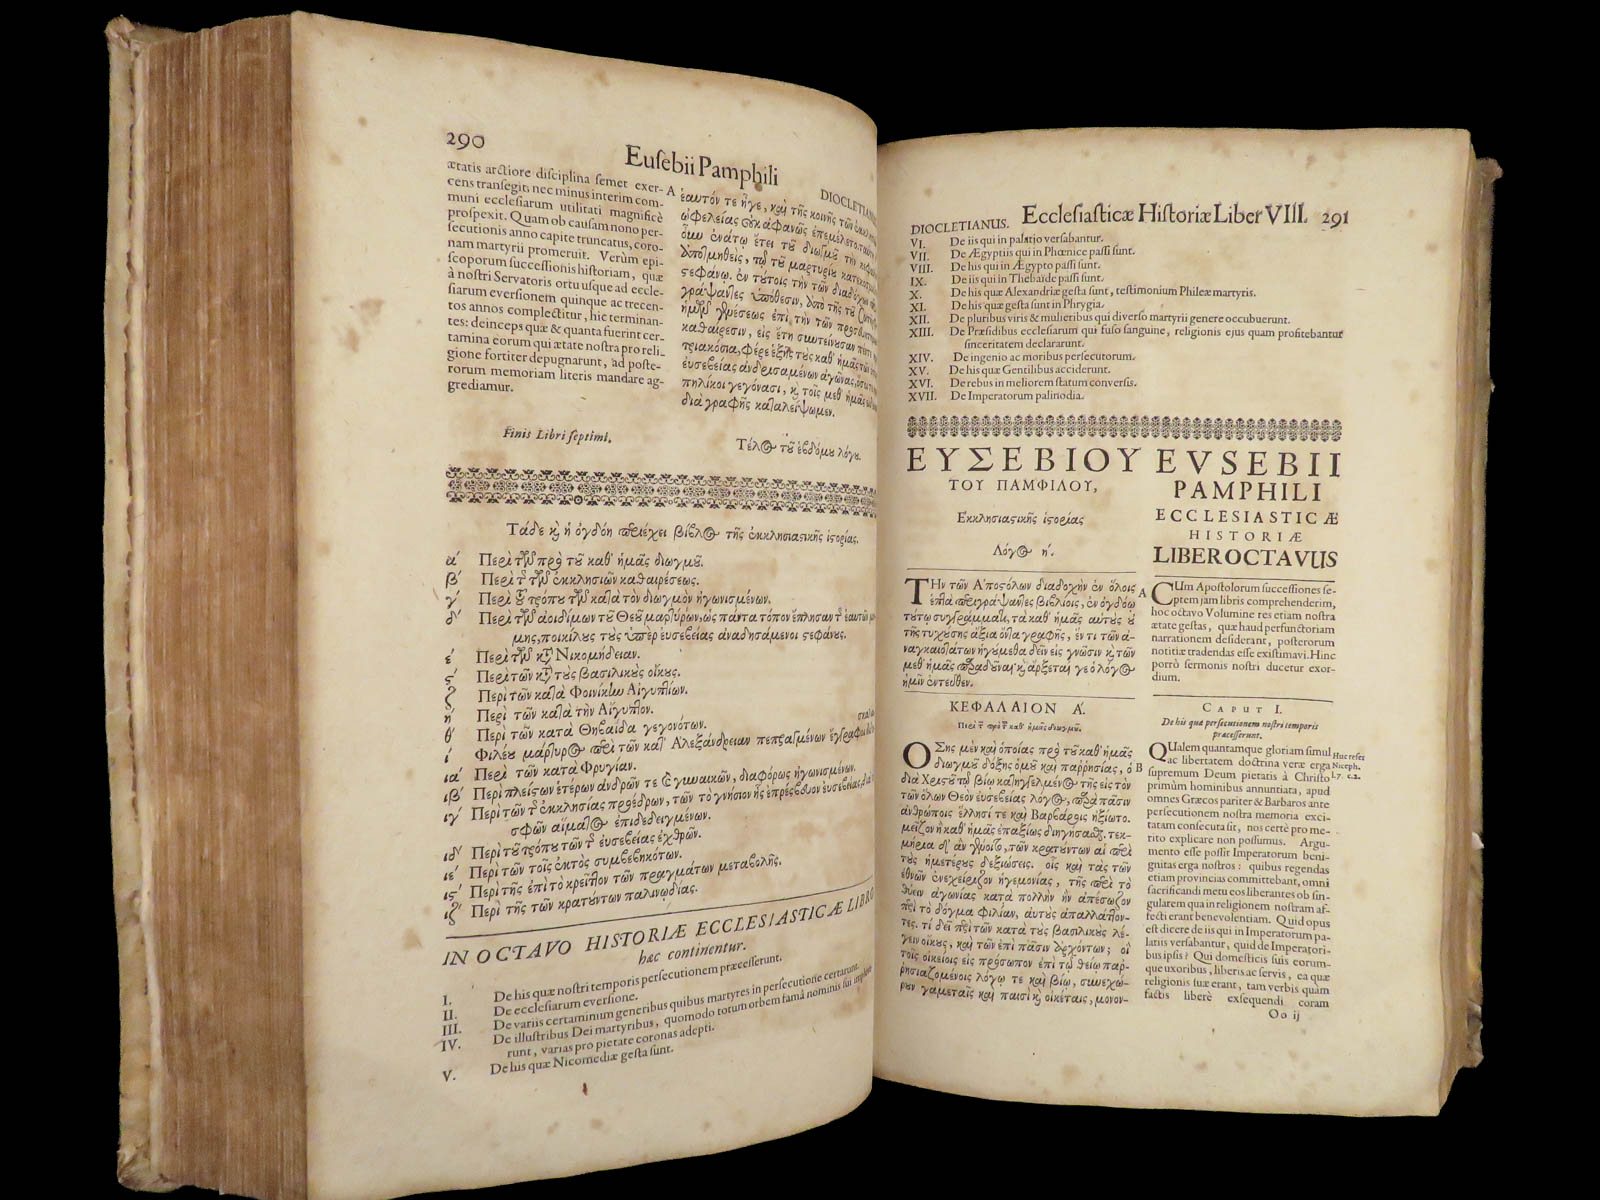 290
Eusebii Pamphili
DIOCLETIANUS
ætatis arctiore disciplina semet exer-
cens transegit: nec minus interim com-
muni ecclesiarum utilitati magnificè
prospexit. Quam ob causam nono per-
secutionis anno capite truncatus, coro-
nam martyrii promeruit. Verùm epi-
scoporum successionis historiam, quæ
à nostri Servatoris ortu usque ad eccle-
siarum eversionem quinque ac trecen-
tos annos complectitur, hic terminan-
tes: deinceps quæ & quanta fuerint cer-
tamina eorum qui ætate nostra pro reli-
gione fortiter depugnarunt, ad poste-
rorum memoriam literis mandare ag-
grediamur.
Finis Libri septimi.
A
ἑαυτόν τε ἦγε, καὶ τῆς κοινῆς τῶν
ὠφελείας οὐκ ἀφανῶς ἐπεμέλετο.
ὅλῳ ἐνάτῳ ἔτει τοῦ διωγμοῦ τὴν
ἀποτμηθεὶς, τῷ τοῦ μαρτυρίου
στεφάνῳ. ἐν τούτοις τὴν τῶν
γράψαντες ὑπόθεσιν, ἀπὸ τῆς τοῦ
ἡμῶν γενέσεως ἐπὶ τὴν τῶν
καθαίρεσιν, εἰς ἔτη συντείνουσαν πέντε
τριακόσια, φέρε ἑξῆς τοὺς καθ' ἡμᾶς τῶν
εὐσεβείας ἀνδρισαμένων ἀγῶνας,
πηλίκοι γεγόνασι, καὶ τοῖς μεθ' ἡμᾶς
διὰ γραφῆς καταλείψωμεν.
Τέλος τοῦ ἑβδόμου λόγου.
Τάδε καὶ ἡ ὀγδόη περιέχει βίβλος τῆς ἐκκλησιαστικῆς ἱστορίας.
α΄ Περὶ τῶν πρὸ τοῦ καθ' ἡμᾶς διωγμοῦ.
β΄ Περὶ τῆς τῶν ἐκκλησιῶν καθαιρέσεως.
γ΄ Περὶ τοῦ τρόπου τῶν κατὰ τὸν διωγμὸν ἠγωνισμένων.
δ΄ Περὶ τῶν ἀοιδίμων τοῦ Θεοῦ μαρτύρων, ὡς πάντα τόπον ἔπλησαν τῆς ἑαυτῶν
μης, ποικίλους τοὺς ὑπὲρ εὐσεβείας ἀναδησάμενοι στεφάνους.
ε΄ Περὶ τῶν κατὰ Νικομήδειαν.
ϛ΄ Περὶ τῶν κατὰ τοὺς βασιλικοὺς οἴκους.
ζ Περὶ τῶν κατὰ Φοινίκην Αἰγυπτίων.
η΄ Περὶ τῶν κατὰ τὴν Αἴγυπτον.
θ΄ Περὶ τῶν κατὰ Θηβαΐδα γεγονότων.
ί Φιλέου μάρτυρος περὶ τῶν κατ' Αλεξάνδρειαν πεπραγμένων ἔγγραφοι
ια΄ Περὶ τῶν κατὰ Φρυγίαν.
ιβ΄ Περὶ πλείστων ἑτέρων ἀνδρῶν τε καὶ γυναικῶν, διαφόρως ἠγωνισμένων.
ιγ΄ Περὶ τῶν τῆς ἐκκλησίας προέδρων, τῶν τὸ γνήσιον ἧς ἐπρέσβευον εὐσεβείας, διὰ
σφῶν αἵματος ἐπιδεδειγμένων.
ιδ΄ Περὶ τοῦ τρόπου τῶν τῆς εὐσεβείας ἐχθρῶν.
ιε΄ Περὶ τῶν τοῖς ἐκτὸς συμβεβηκότων.
ιϛ΄ Περὶ τῆς ἐπὶ τὸ κρεῖττον τῶν πραγμάτων μεταβολῆς.
ιζ΄ Περὶ τῆς τῶν κρατούντων παλινῳδίας.
IN OCTAVO HISTORIÆ ECCLESIASTICÆ LIBRO
hæc continentur.
I. De his quæ nostri temporis persecutionem præcesserunt.
II. De ecclesiarum eversione.
III. De variis certaminum generibus quibus martyres in persecutione certarunt.
IV. De illustribus Dei martyribus, quomodo totum orbem famâ nominis sui impleve
runt, varias pro pietate coronas adepti.
V. De his quæ Nicomediæ gesta sunt.
DIOCLETIANUS. Ecclesiasticæ Historiæ Liber VIII. 291
VI. De iis qui in palatio versabantur.
VII. De Ægyptiis qui in Phœnice passi sunt.
VIII. De his qui in Ægypto passi sunt.
IX. De iis qui in Thebaide passi sunt.
X. De his quæ Alexandriæ gesta sunt, testimonium Phileæ martyris.
XI. De his quæ gesta sunt in Phrygia.
XII. De pluribus viris & mulieribus qui diverso martyrii genere occubuerunt.
XIII. De Præsidibus ecclesiarum qui fuso sanguine, religionis ejus quam profitebantur
sinceritatem declararunt.
XIV. De ingenio ac moribus persecutorum.
XV. De his quæ Gentilibus acciderunt.
XVI. De rebus in meliorem statum conversis.
XVII. De Imperatorum palinodia.
ΕΥΣΕΒΙΟΥ
ΤΟΥ ΠΑΜΦΙΛΟΥ,
Εκκλησιαστικῆς ἱστορίας
Λόγος η΄.
ΤΗν τῶν Ἀποστόλων διαδοχὴν ἐν ὅλοις
ἑπτὰ περιγράψαντες βιβλίοις, ἐν ὀγδόῳ
τούτῳ συγγράμματι, τὰ καθ' ἡμᾶς αὐτοὺς οὐ
τῆς τυχούσης ἄξια ὄντα γραφῆς, ἕν τι τῶν ἀ-
ναγκαιοτάτων ἡγούμεθα δεῖν εἰς γνῶσιν καὶ τῶν
μεθ' ἡμᾶς παραδοῦναι· καὶ ἄρξεταί γε ὁ λόγος
ἡμῖν ἐντεῦθεν.
ΚΕΦΑΛΑΙΟΝ Α΄.
Περὶ τῶν πρὸ τοῦ καθ' ἡμᾶς διωγμοῦ.
ΟΣης μὲν καὶ ὁποίας πρὸ τοῦ καθ' ἡμᾶς
διωγμοῦ δόξης ὁμοῦ καὶ παρρησίας, ὁ
διὰ Χριστοῦ τῷ βίῳ κατηγγελμένος τῆς εἰς τὸν
τῶν ὅλων Θεὸν εὐσεβείας λόγος, παρὰ πᾶσιν
ἀνθρώποις ἕλλησί τε καὶ Βαρβάροις ἠξίωτο.
μεῖζον ἢ καθ' ἡμᾶς ἐπαξίως διηγήσασθαι. τεκ-
μήρια δ' ἂν γένοιτο, τῶν κρατούντων αἱ περὶ
τοὺς ἡμετέρους δεξιώσεις. οἷς καὶ τὰς τῶν
ἐθνῶν ἐνεχείριζον ἡγεμονίας, τῆς περὶ τὸ
θύειν ἀγωνίας κατὰ πολλὴν ἣν ἀπέσωζον
περὶ τὸ δόγμα φιλίαν, αὐτοὺς ἀπαλλάττον-
τες. τί δεῖ περὶ τῶν κατὰ τοὺς βασιλικοὺς λέ-
γειν οἴκους, καὶ τῶν ἐπὶ πᾶσιν ἀρχόντων; οἳ
τοῖς οἰκείοις εἰς πρόσωπον ἐπὶ τῷ θείῳ παρ-
ρησιαζομένοις λόγῳ τε καὶ βίῳ, συνεχώ-
ρουν γαμεταῖς καὶ παισὶ καὶ οἰκέταις, μονον-
EVSEBII
PAMPHILI
ECCLESIASTICÆ
HISTORIÆ
LIBER OCTAVUS
A
CUm Apostolorum successiones se-
ptem jam libris comprehenderim,
hoc octavo Volumine res etiam nostra
ætate gestas, quæ haud perfunctoriam
narrationem desiderant, posterorum
notitiæ tradendas esse existimavi. Hinc
porrò sermonis nostri ducetur exor-
dium.
CAPUT I.
De his quæ persecutionem nostri temporis
præcesserunt.
B
QUalem quantamque gloriam simul
ac libertatem doctrina veræ erga
supremum Deum pietatis à Christo
primùm hominibus annuntiata, apud
omnes Græcos pariter & Barbaros ante
persecutionem nostra memoria exci-
tatam consecuta sit, nos certè pro me-
rito explicare non possumus. Argu-
mento esse possit Imperatorum beni-
gnitas erga nostros: quibus regendas
etiam provincias committebant, omni
sacrificandi metu eos liberantes ob sin-
gularem qua in religionem nostram af-
fecti erant benevolentiam. Quid opus
est dicere de iis qui in Imperatorum pa-
latiis versabantur, quid de Imperatori-
bus ipsis? Qui domesticis suis eorum-
que uxoribus, liberis ac servis, ea quæ
religionis suæ erant, tam verbis quam
factis liberè exsequendi coram
Huc refer
Niceph.
l.7. c.2.
Oo ij